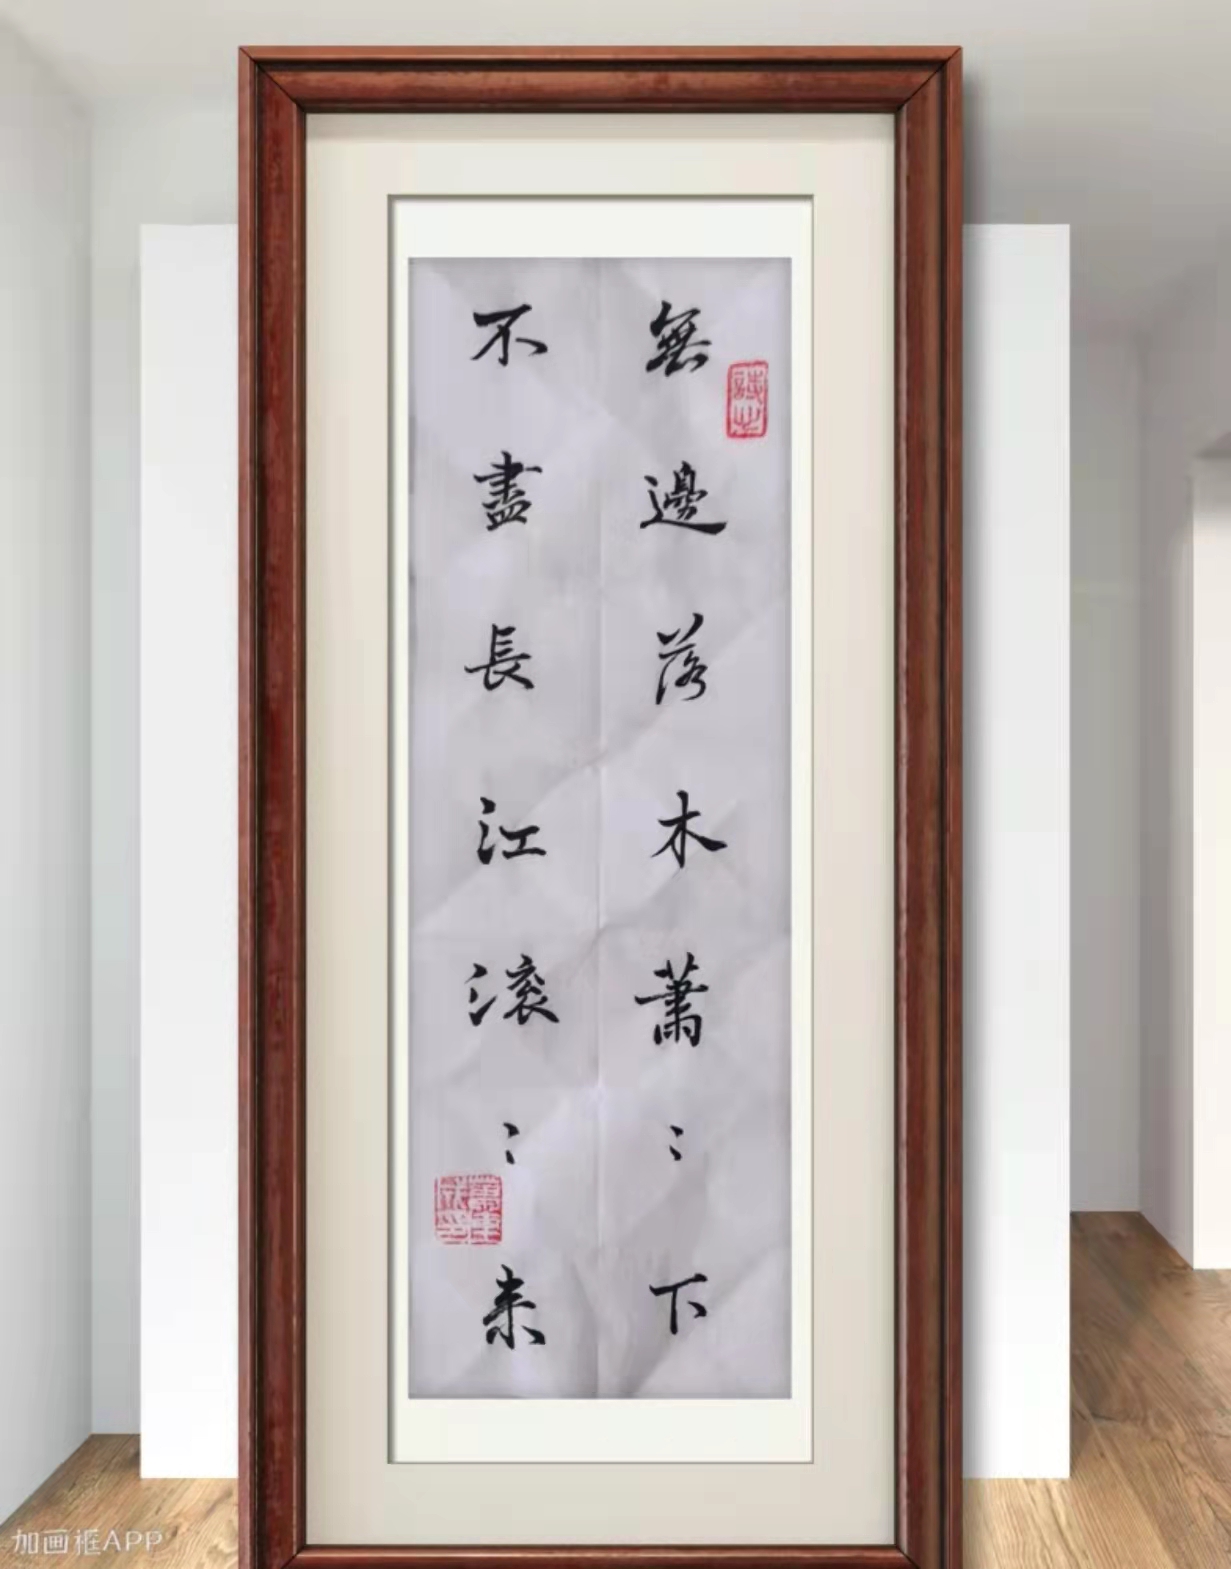 無邊落木蕭〻下
不盡長江滾〻来
加画框APP